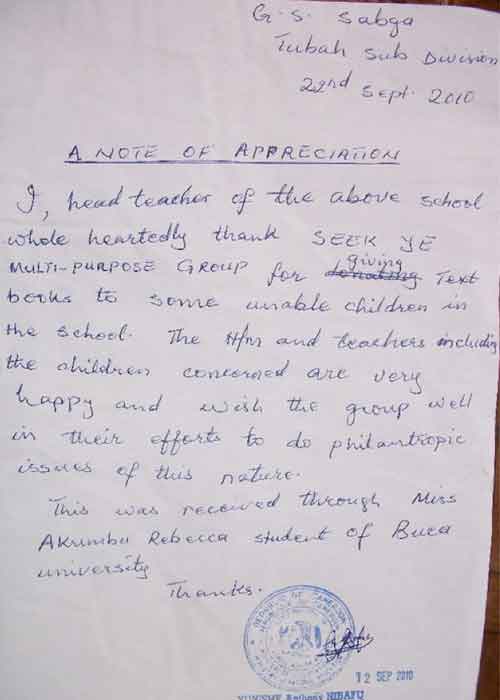 G. S. Sabga
Tubah Sub Division
22nd Sept. 2010
A NOTE OF APPRECIATION
I, head teacher of the above school
whole heartedly thank SEEK YE
giving
MULTI-PURPOSE GROUP for donating Text
books to some unable children in
the school. The H/m and teachers includin
the children concerned are very
happy and wish the group well
in their efforts to do philantropic
issues of this nature.
This was received through Miss
Akumbu Rebecca student of Buea
university
Thanks.
REPUBLIC OF CAMEROON
12 SEP 2010